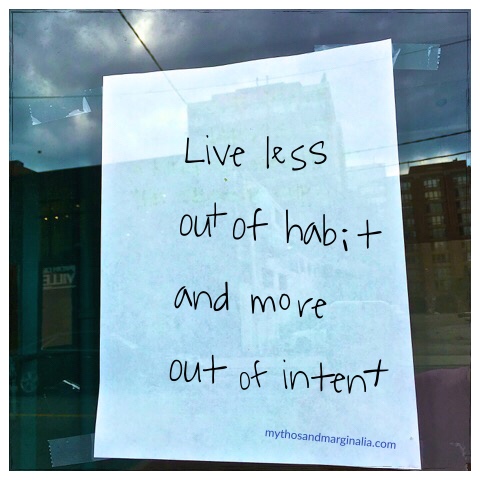 Live less
out of habit
and more
out of intent
mythosandmarginalia.com